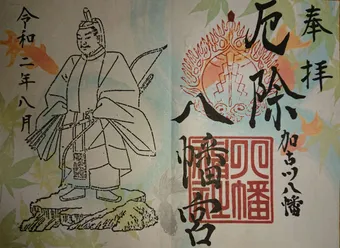 奉拝
厄除
八幡宮
加古川八幡
令和二年八月